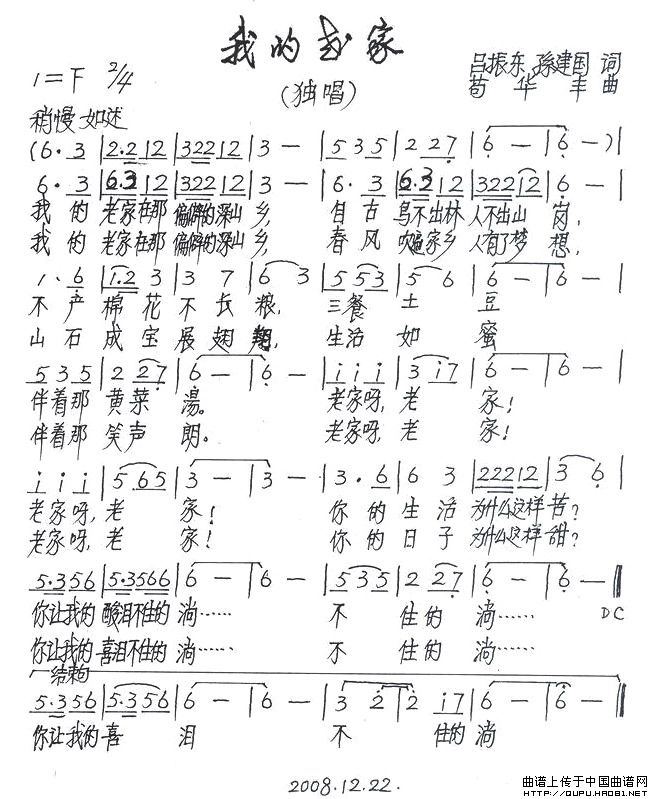 我的老家
(独唱)
1=F 2/4
吕振东、孙建国 词
苟华丰 曲
稍慢 如述
(6·3|2·2 12|322 12|3 —|5 3 5|2 2 7|6 —|6 —)|
6·3|6·3 12|322 12|3 —|6·3|6·3 12|322 12|6 —|
我的老家在那偏僻的深山乡, 自古鸟不出林人不出山岗,
我的老家在那偏僻的深山乡, 春风吹遍家乡人有了梦想,
1·6|1·2 3|3 7|6 3|5 5 3|5 6|6 —|6 —|
不产棉花不长粮, 三餐土豆
山石成宝展翅翔, 生活如蜜
5 3 5|2 2 7|6 —|6 —|i i i|3 i 7|6 —|6 —|
伴着那黄菜汤。 老家呀,老家!
伴着那笑声朗。 老家呀,老家!
i i i|5 6 5|3 —|3 —|3·6|6 3|222 12|3 6|
老家呀,老家! 你的生活为什么这样苦?
老家呀,老家! 你的日子为什么这样甜?
5·3 56|5·3 566|6 —|6 —|5 3 5|2 2 7|6 —|6 —‖
你让我的酸泪不住的淌…… 不住的淌…… DC
你让我的喜泪不住的淌…… 不住的淌……
结束句
5·3 56|5·3 56|6 —|6 —|3 2|2 i7|6 —|6 —‖
你让我的喜泪 不住的淌
2008.12.22.
曲谱上传于中国曲谱网
HTTP://QUPU.HAO81.NET